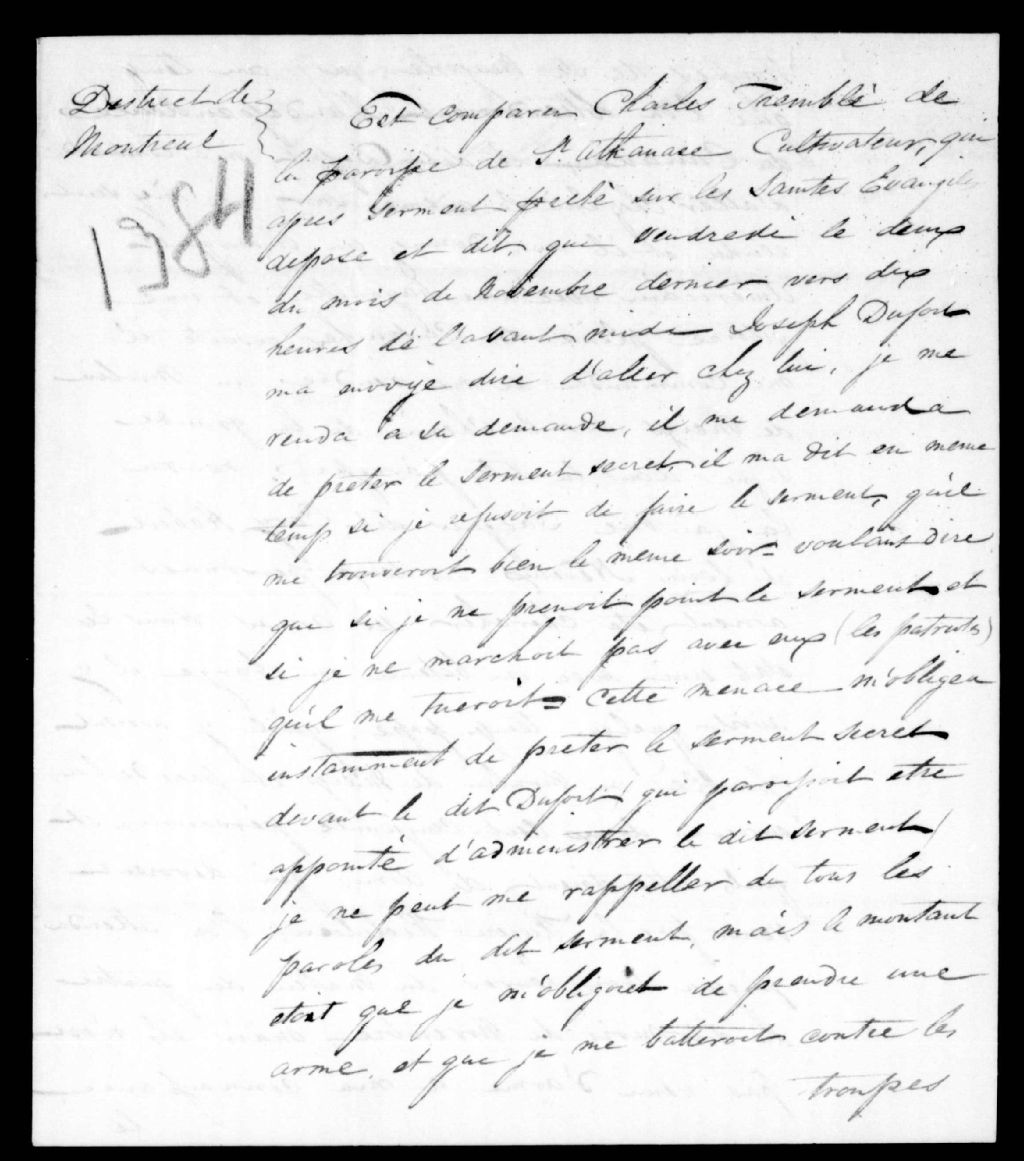 District de
Montreal
1384
Est comparu Charles Tremblé de
la paroisse de St. Athanase Cultivateur, qui
apres Serment preté sur les Saintes Evangiles
depose et dit, que Vendredi le deux
du mois de Novembre dernier vers dix
heures de l'avant midi Joseph Dufort
ma envoyé dire d'aller chez lui, je me
renda a sa demande, il me demanda
de preter le Serment secret, il ma dit en meme
temp si je refusoit de faire le serment, qu'il
me trouveroit bien le meme soir = voulant dire
que si je ne prenoit point le Serment et
si je ne marchoit pas avec eux (les patriotes)
qu'il me tueroit = Cette menace m'obligea
instamment de preter le serment secret
devant le dit Dufort (qui paroissoit etre
appointé d'administrer le dit serment)
je ne peut me rappeller de tous les
paroles du dit serment, mais le montant
etoit que je m'obligoiet de prendre une
arme, et que je me batteroit contre les
troupes